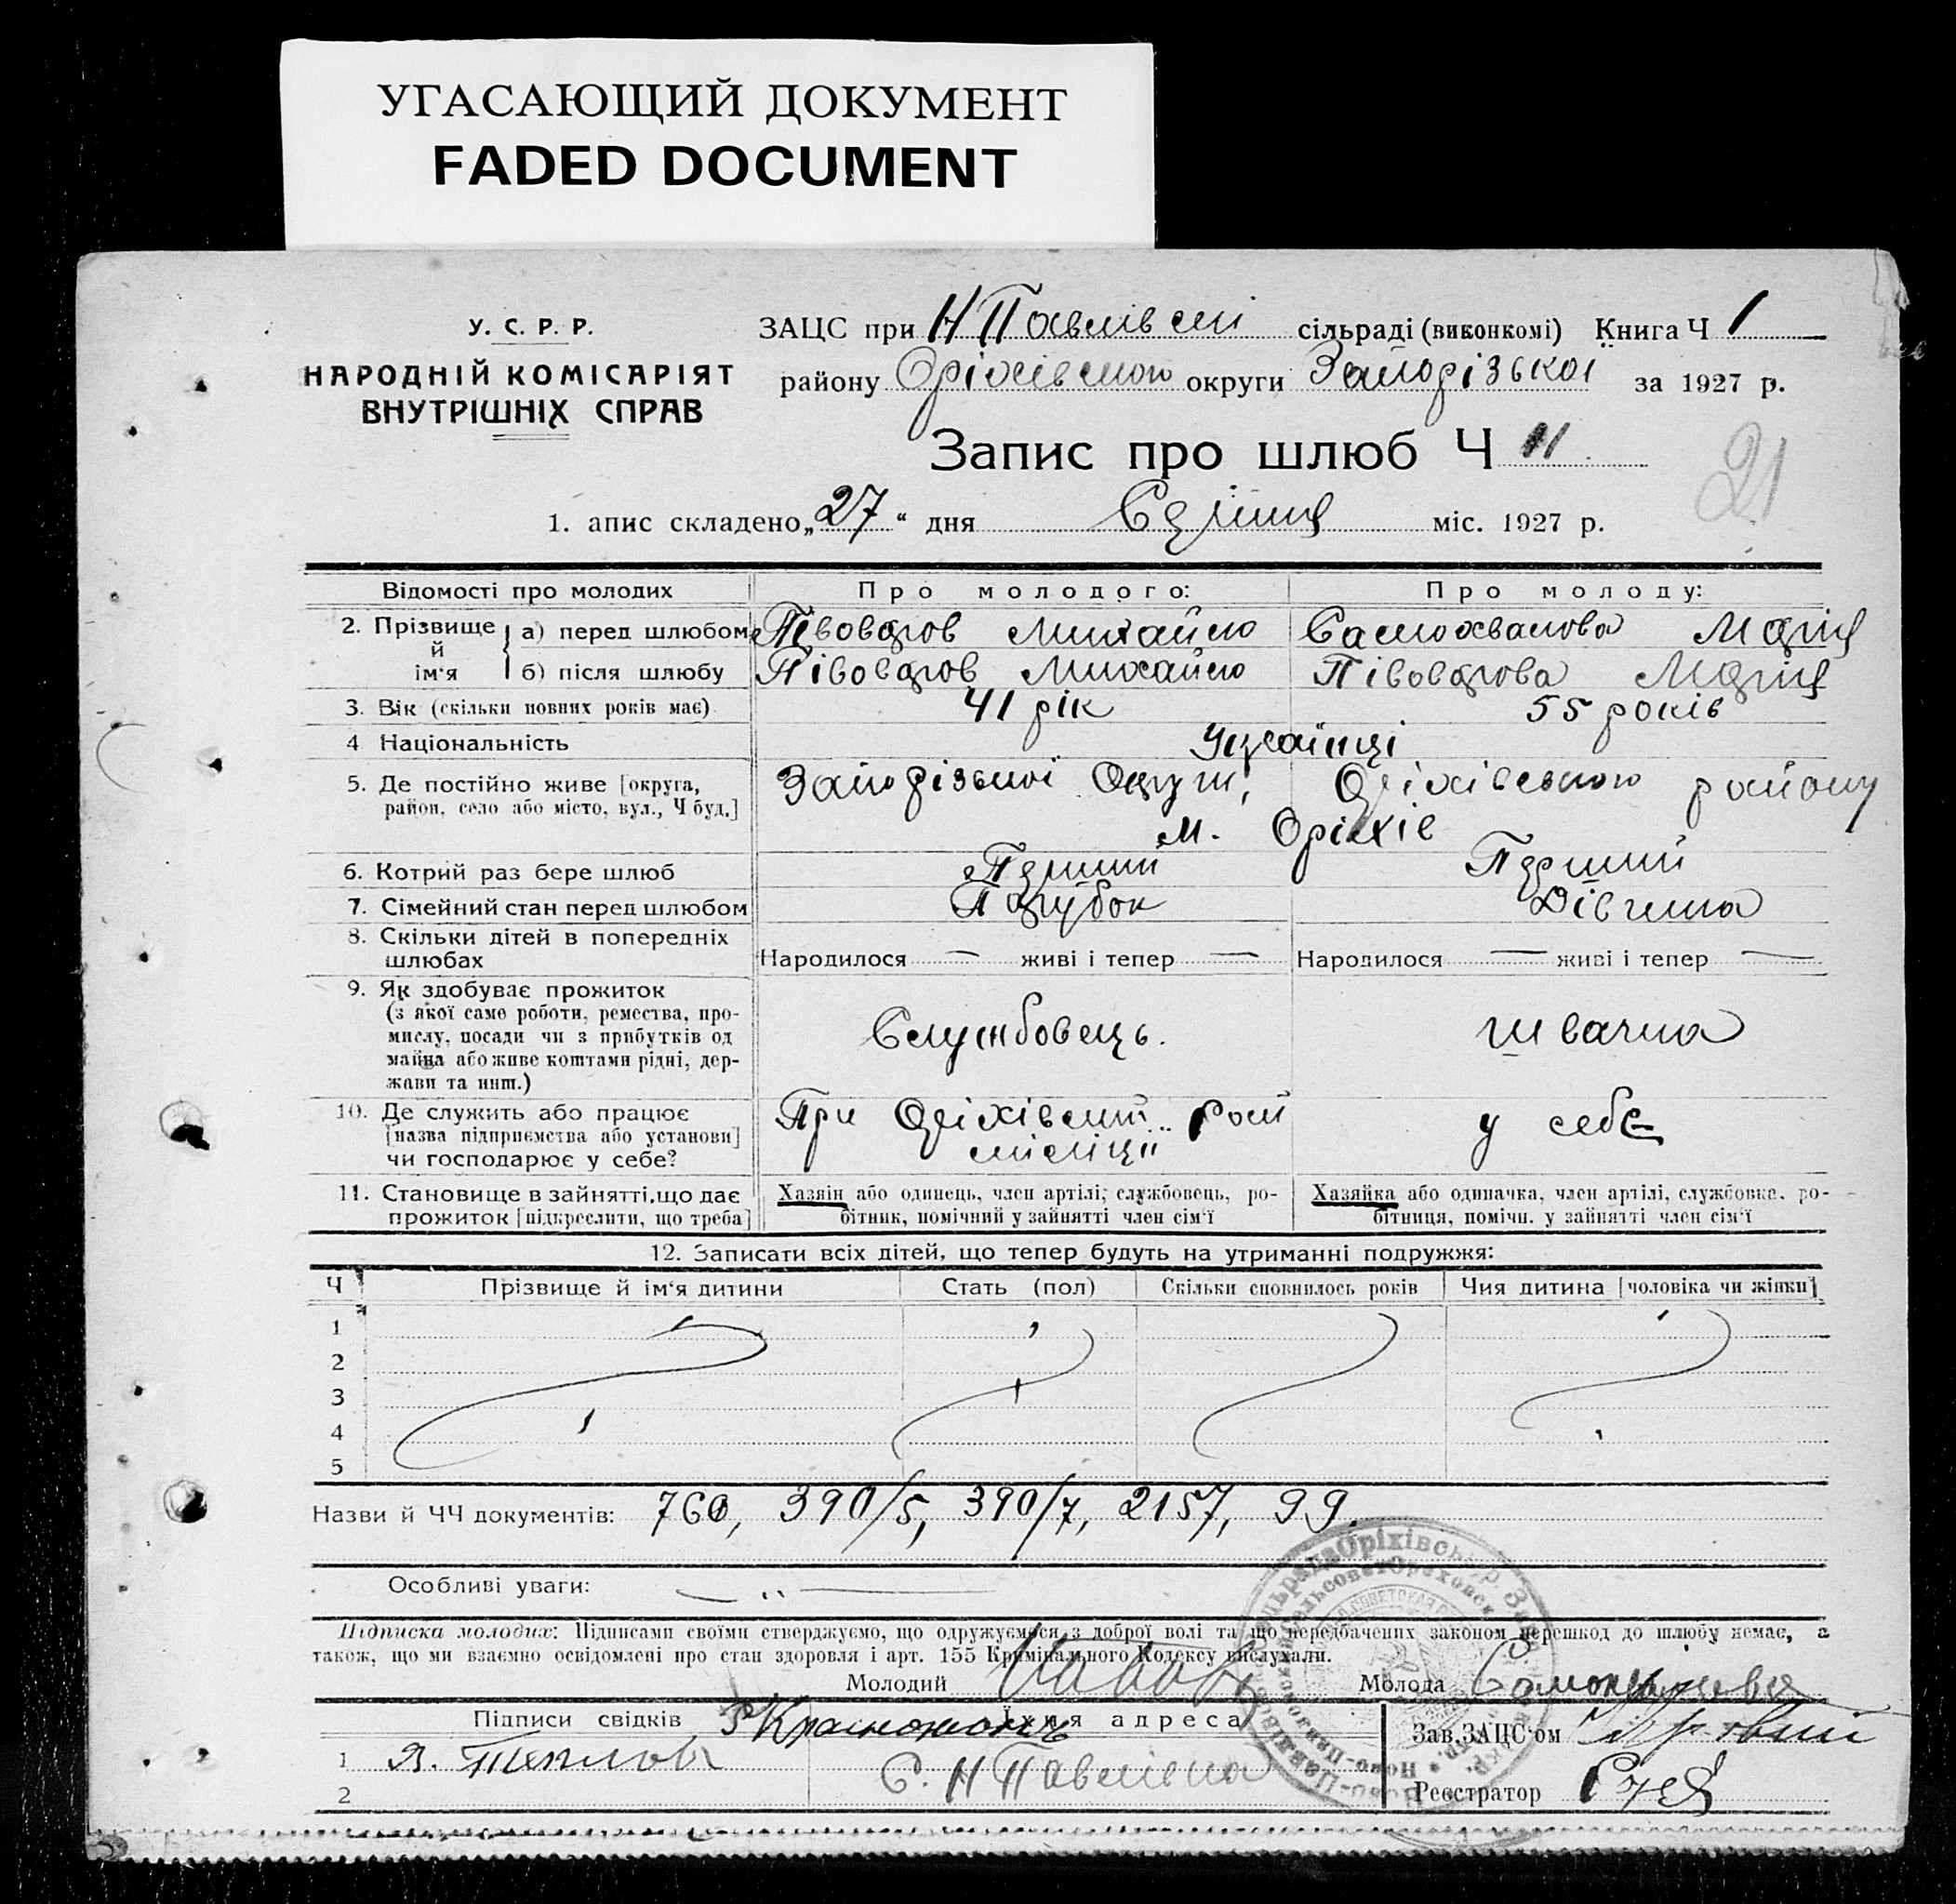 УГАСАЮЩИЙ ДОКУМЕНТ
FADED DOCUMENT
У. С. Р. Р.
НАРОДНІЙ КОМІСАРІЯТ
ВНУТРІШНІХ СПРАВ
ЗАЦС при Н Павлівскі сільраді (виконкомі) Книга Ч 1
району Оріхівського округи Запорізької за 1927 р.
Запис про шлюб Ч 11
21
1. апис складено „27“ дня Серпня міс. 1927 р.
Відомості про молодих Про молодого: Про молоду:
2. Прізвище й ім'я а) перед шлюбом Півоваров Михайло Самохвалова Марія
б) після шлюбу Півоваров Михайло Півоварова Марія
3. Вік (скільки повних років має) 41 рік 55 років
4 Національність Українці
5. Де постійно живе [округа, Запорізької Округи, Оріхівського району
район, село або місто, вул., Ч буд.] м. Оріхів
6. Котрий раз бере шлюб Перший Перший
7. Сімейний стан перед шлюбом Парубок Дівчина
8. Скільки дітей в попередніх
шлюбах Народилося — живі і тепер — Народилося — живі і тепер —
9. Як здобуває прожиток
(з якої саме роботи, ремества, про-
мислу, посади чи з прибутків од
майна або живе коштами рідні, дер-
жави та инш.) Службовець. Швачка
10. Де служить або працює При Оріхівській Рай у себе
[назва підприємства або установи] міліції
чи господарює у себе?
11. Становище в зайнятті, що дає Хазяін або одинець, член артілі; службовець, ро- Хазяйка або одиначка, член артілі, службовка. ро-
прожиток [підкреслити, що треба] бітник, помічний у зайнятті член сім'ї бітниця, помічн. у зайнятті член сім'ї
12. Записати всіх дітей, що тепер будуть на утриманні подружжя:
Ч Прізвище й ім'я дитини Стать (пол) Скільки сповнилось років Чия дитина [чоловіка чи жінки]
1
2
3
4
5
Назви й ЧЧ документів: 760, 390/5, 390/7, 2157, 99.
Особливі уваги:
Підписка молодих: Підписами своїми стверджуємо, що одружуємося з доброї волі та що передбачених законом перешкод до шлюбу немає, а
також, що ми взаємно освідомлені про стан здоровля і арт. 155 Кримінального Кодексу вислухали.
Молодий Молода Самохвалова
Підписи свідків Красножон Їхня адреса Зав. ЗАЦС'ом
1 В. Теплова С. Н Павлівка
2 Реєстратор